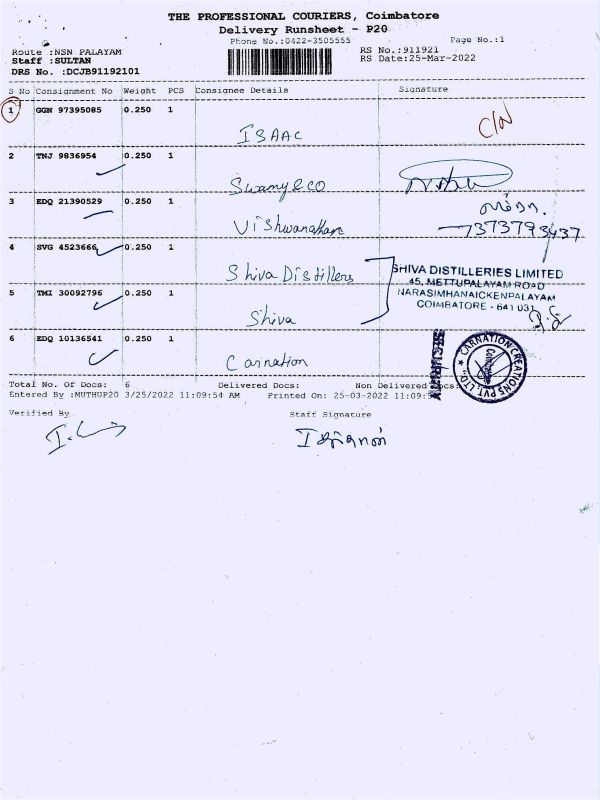 THE PROFESSIONAL COURIERS, Coimbatore
Delivery Runsheet - P20
Phone No.:0422-3505555 Page No.:1
Route :NSN PALAYAM RS No.:911921
Staff :SULTAN RS Date:25-Mar-2022
DRS No. :DCJB91192101
S No Consignment No Weight PCS Consignee Details Signature
1 GGN 97395085 0.250 1
ISAAC C/N
2 TNJ 9836954 0.250 1
Swamy & co
3 EDQ 21390529 0.250 1
Vishwanathan 7373793437
4 SVG 4523666 0.250 1
Shiva Distillers
SHIVA DISTILLERIES LIMITED
45, METTUPALAYAM ROAD
NARASIMHANAICKENPALAYAM
COIMBATORE - 641 031
5 TMI 30092796 0.250 1
Shiva
6 EDQ 10136541 0.250 1
Carnation
SECURITY
CARNATION CREATIONS PVT. LTD.,
Coimbatore
Total No. Of Docs: 6 Delivered Docs: Non Delivered Docs:
Entered By :MUTHUP20 3/25/2022 11:09:54 AM Printed On: 25-03-2022 11:09:5
Verified By Staff Signature